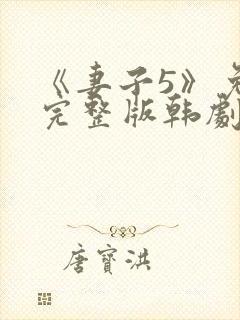 《妻子5》免
完整版韩劇
唐寶洪